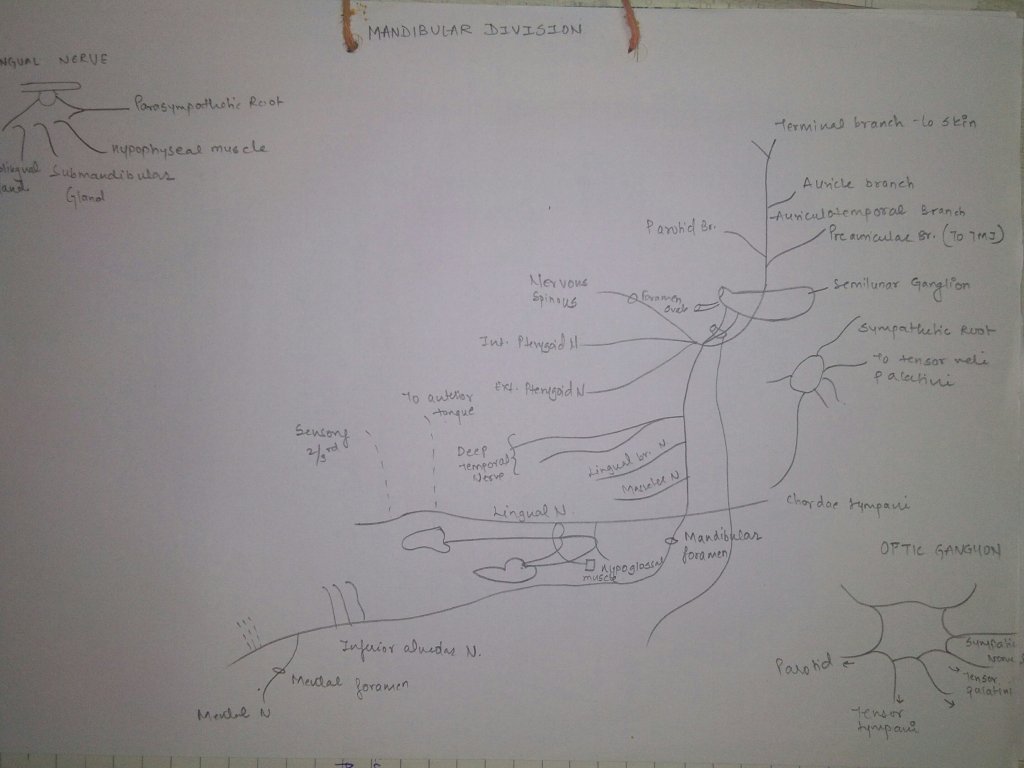 MANDIBULAR DIVISION
NGUAL NERVE
Parasympathetic Root
Hypophyseal muscle
Submandibular
Gland
Terminal branch - to skin
Auricle branch
Auriculotemporal Branch
Preauricular Br. (To TMJ)
Parotid Br.
Semilunar Ganglion
Nervous
Spinous
Foramen
ovale
Int. Pterygoid N
Ext. Pterygoid N
Sympathetic Root
To tensor veli
Palatini
To anterior
tongue
Sensory
2/3rd
Deep
temporal
Nerve
Lingual br. N
Masseter N
Lingual N.
Chordae tympani
Mandibular
foramen
Hypoglossal
muscle
OPTIC GANGLION
Inferior alveolar N.
Mental foramen
Mental N
Parotid
Sympatic
Nerve
Tensor
palatini
Tensor
tympani